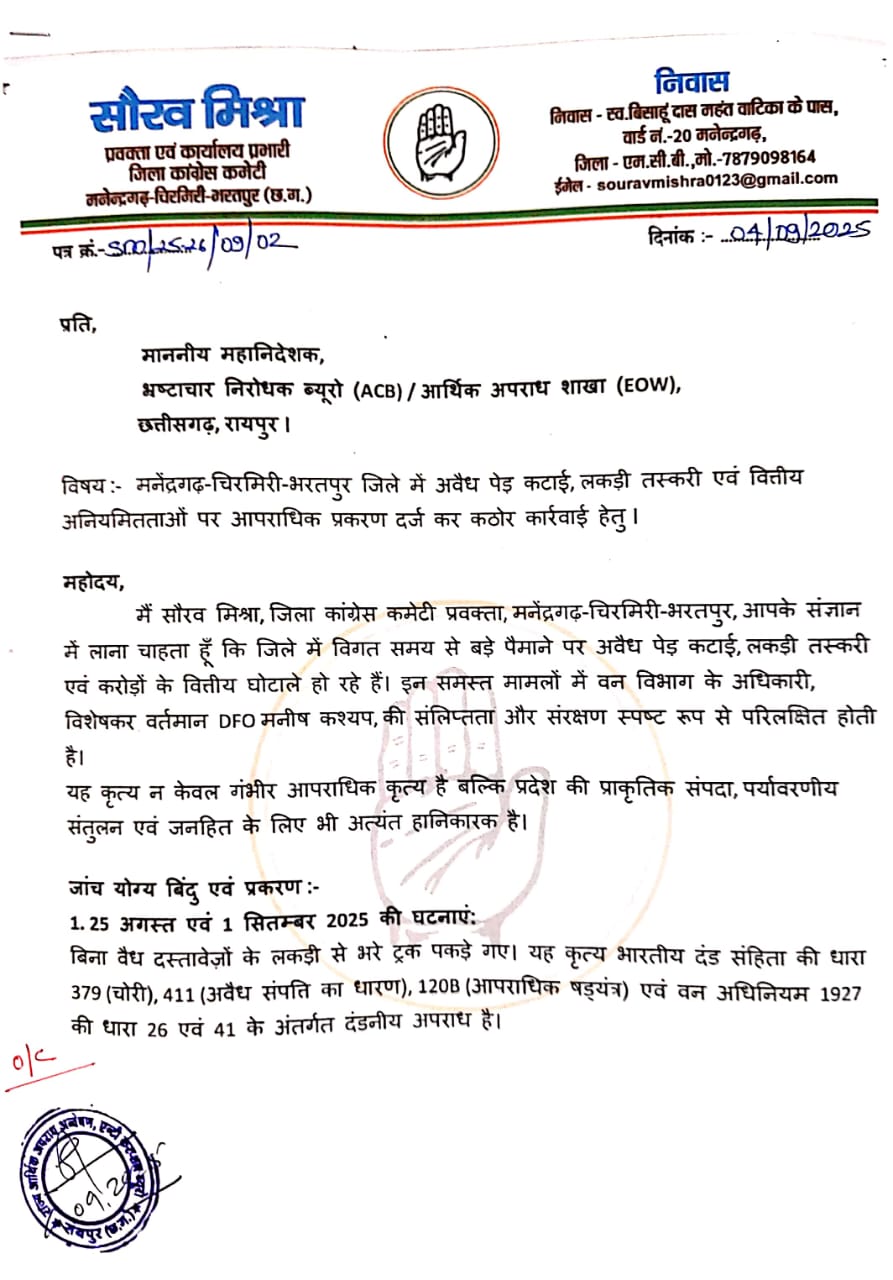 सौरव मिश्रा
प्रवक्ता एवं कार्यालय प्रभारी
जिला कांग्रेस कमेटी
मनेन्द्रगढ़-चिरमिरी-भरतपुर (छ.ग.)
निवास
निवास - स्व.बिसाहू दास महंत वाटिका के पास,
वार्ड नं.-20 मनेन्द्रगढ़,
जिला - एम.सी.बी.,मो.-7879098164
ईमेल - souravmishra0123@gmail.com
पत्र क्रं.-SM/25-26/09/02
दिनांक :- 04/09/2025
प्रति,
माननीय महानिदेशक,
भ्रष्टाचार निरोधक ब्यूरो (ACB) / आर्थिक अपराध शाखा (EOW),
छत्तीसगढ़, रायपुर।
विषय :- मनेंद्रगढ़-चिरमिरी-भरतपुर जिले में अवैध पेड़ कटाई, लकड़ी तस्करी एवं वित्तीय
अनियमितताओं पर आपराधिक प्रकरण दर्ज कर कठोर कार्रवाई हेतु।
महोदय,
मैं सौरव मिश्रा, जिला कांग्रेस कमेटी प्रवक्ता, मनेंद्रगढ़-चिरमिरी-भरतपुर, आपके संज्ञान
में लाना चाहता हूँ कि जिले में विगत समय से बड़े पैमाने पर अवैध पेड़ कटाई, लकड़ी तस्करी
एवं करोड़ों के वित्तीय घोटाले हो रहे हैं। इन समस्त मामलों में वन विभाग के अधिकारी,
विशेषकर वर्तमान DFO मनीष कश्यप, की संलिप्तता और संरक्षण स्पष्ट रूप से परिलक्षित होती
है।
यह कृत्य न केवल गंभीर आपराधिक कृत्य है बल्कि प्रदेश की प्राकृतिक संपदा, पर्यावरणीय
संतुलन एवं जनहित के लिए भी अत्यंत हानिकारक है।
जांच योग्य बिंदु एवं प्रकरण :-
1. 25 अगस्त एवं 1 सितम्बर 2025 की घटनाएं:
बिना वैध दस्तावेज़ों के लकड़ी से भरे ट्रक पकड़े गए। यह कृत्य भारतीय दंड संहिता की धारा
379 (चोरी), 411 (अवैध संपति का धारण), 120B (आपराधिक षड्यंत्र) एवं वन अधिनियम 1927
की धारा 26 एवं 41 के अंतर्गत दंडनीय अपराध है।
O/C
रायपुर (छ.ग.)